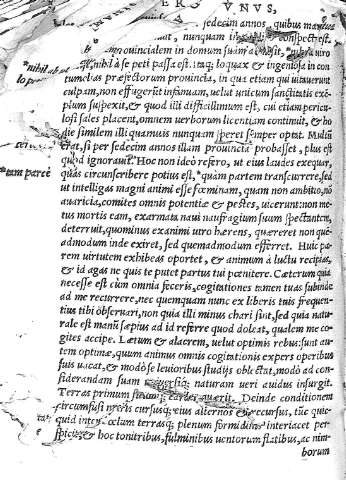 VNVS,
sedecim annos, quibus maritus
nunquam in conspect. est.
prouincialem in domum suam admisit, *nihil a viro
*nihil à se peti passa est: itaq; loquax & ingeniosa in con
tumelias præfectorum prouincia, in qua etiam qui uitauerunt
culpam, non effugerût infamiam, uelut unicum sanctitatis exē
plum suspexit, & quod illi difficillimum est, cui etiam pericu-
losi sales placent, omnem uerborum licentiam continuit, & ho
die similem illi quamuis nunquam speret semper optat. Multū
erat, si per sedecim annos illam prouincia probasset, plus est
quòd ignorauit. Hoc non ideò refero, ut eius laudes exequar,
quas circunscribere potius est, *quàm partem transcurrere, sed
ut intelligas magni animi esse fœminam, quam non ambitio, nō
auaricia, comites omnis potentiæ & pestes, uicerunt: non me-
tus mortis eam, exarmata naui naufragium suum spectantem,
deterruit, quominus exanimi uiro hærens, quæreret non que-
admodum inde exiret, sed quemadmodum efferret. Huic pa-
rem uirtutem exhibeas oportet, & animum à luctu recipias,
& id agas ne quis te putet partus tui pœnitere. Cæterum quia
necesse est cùm omnia feceris, cogitationes tamen tuas subinde
ad me recurrere, nec quemquam nunc ex liberis tuis frequen-
tius tibi obseruari, non quia illi minus chari sint, sed quia natu-
rale est manū sæpius ad id referre quod doleat, qualem me co-
gites accipe. Lætum & alacrem, uelut optimis rebus: sunt au-
tem optimæ, quum animus omnis cogitationis expers operibus
suis uacat, & modò se leuioribus studijs oblectat, modò ad con-
siderandam suam uniuersiq; naturam ueri auidus insurgit.
Terras primum situmq; earum quærit. Deinde conditionem
circumfusi maris cursusq; eius alternos & recursus, tūc quic-
quid inter cœlum terrasq; plenum formidinis interiacet per
spicit, & hoc tonitribus, fulminibus uentorum flatibus, ac nim-
borum
*nihil ab
*tam parcè